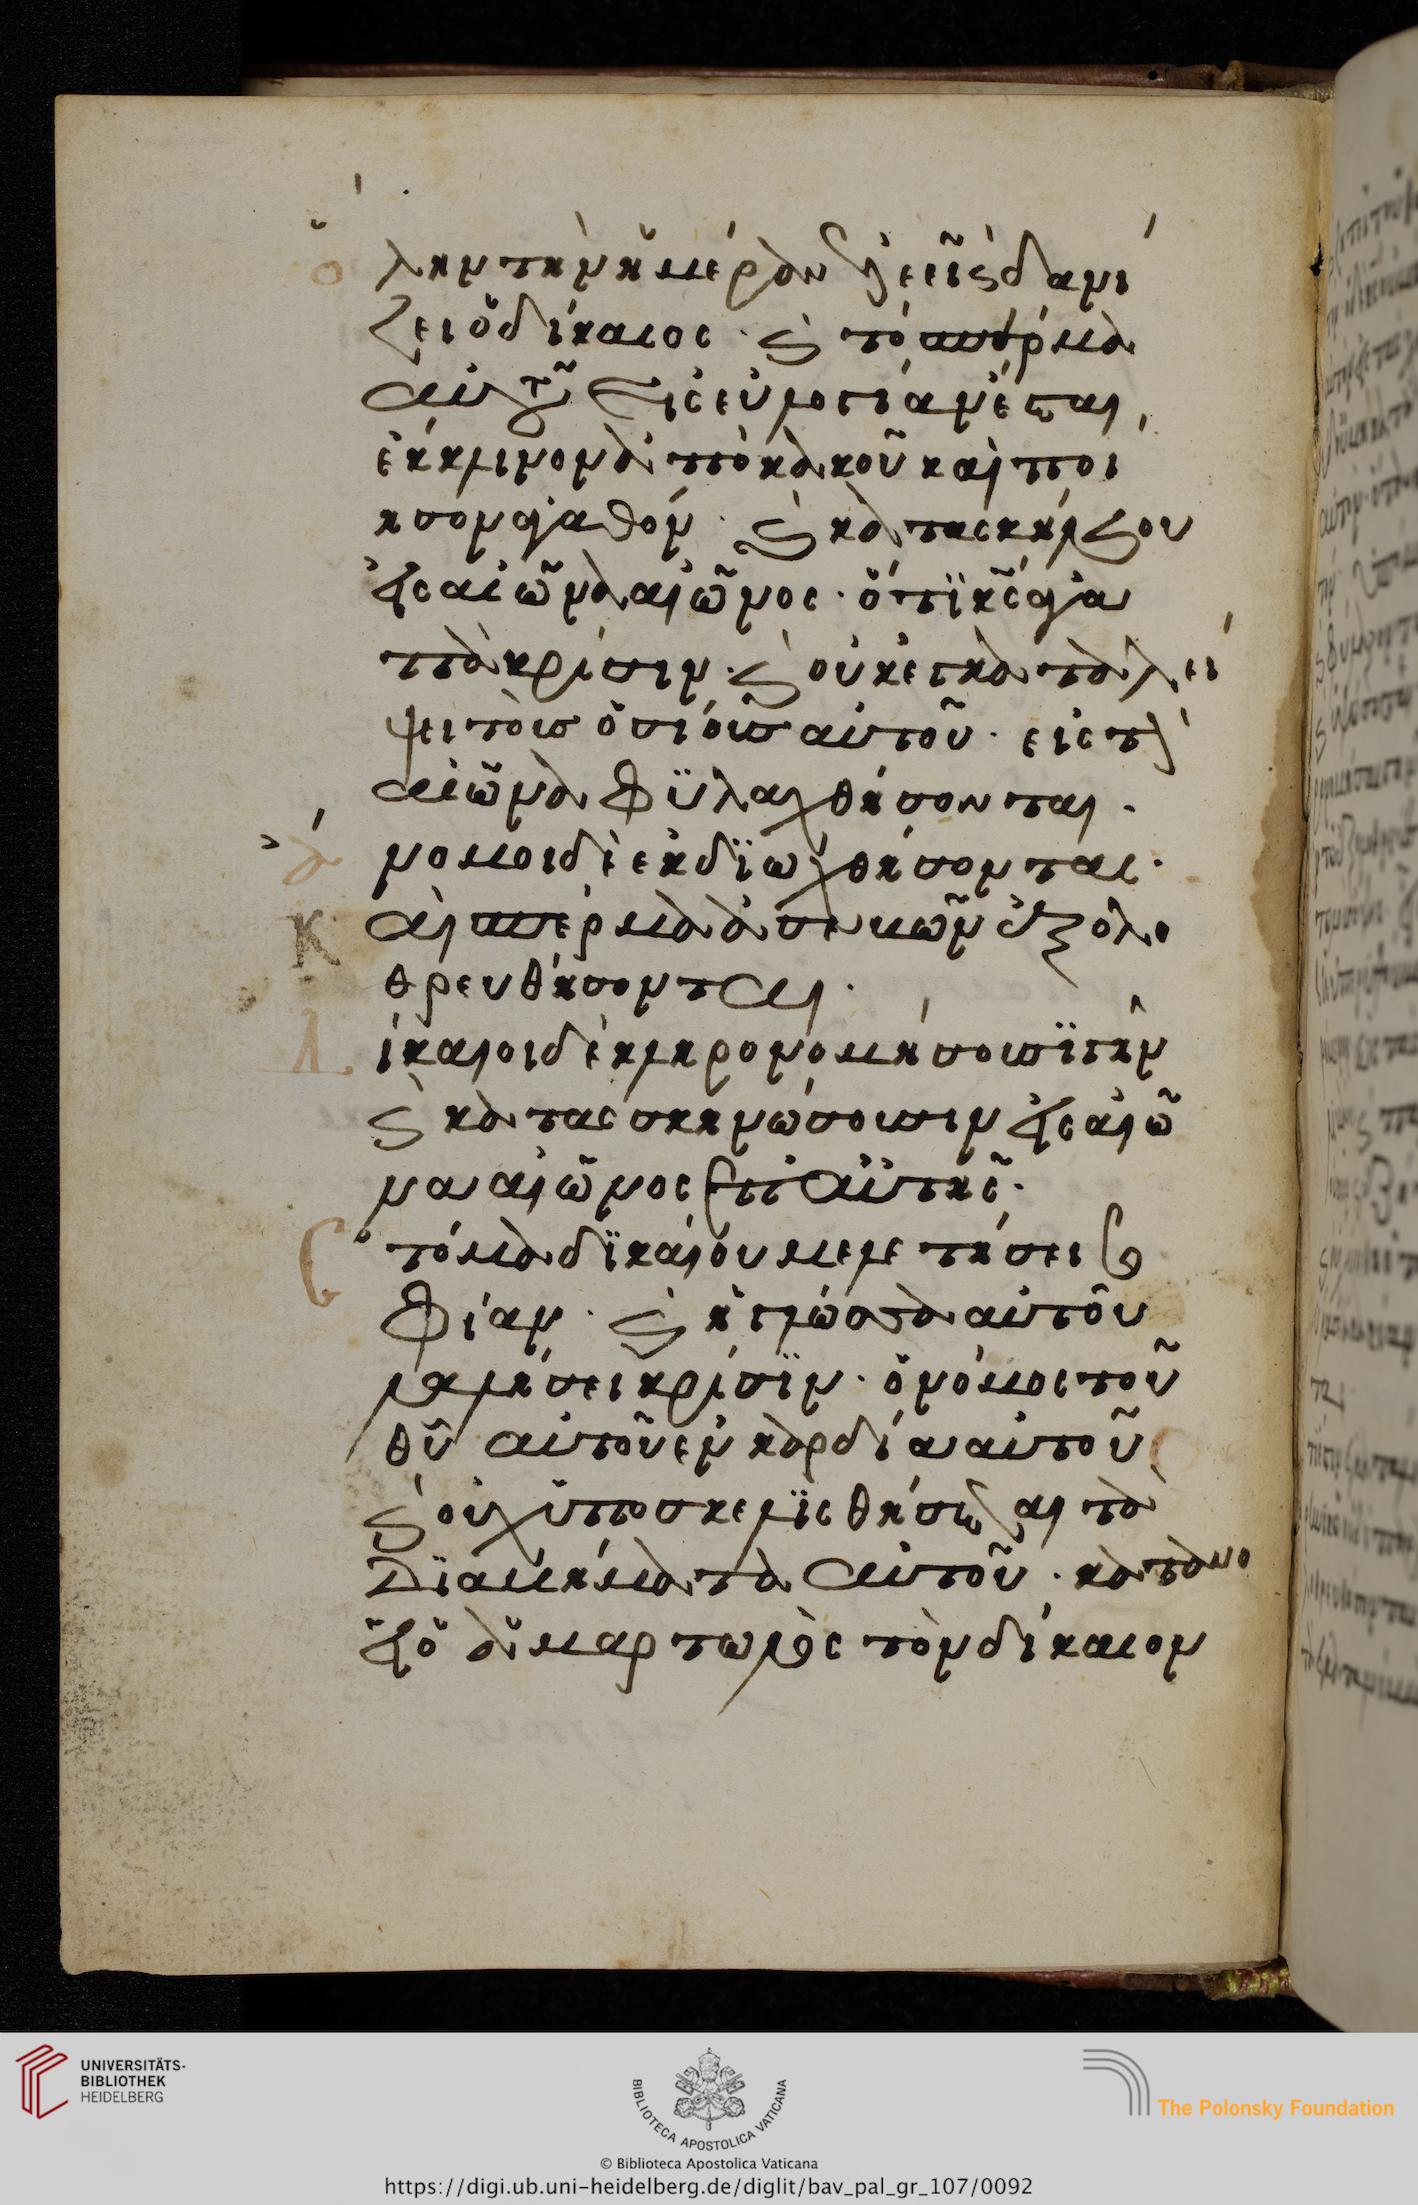 ὅλην τὴν ἡμέραν ἐλεεῖ ϗ δανί
ζει ὁ δίκαιος · ϗ τὸ σπέρμα
αὐτοῦ εἰς εὐλογίαν ἔσται,
ἔκκλινον ἀπὸ κακοῦ καὶ ποί
ησον ἀγαθόν · ϗ κατασκήνου
εἰς αἰῶνα αἰῶνος · ὅτι κ̅ς̅ ἀγα
πᾶ κρίσιν · ϗ οὐκ ἐγκαταλεί
ψει τοὺς ὁσίους αὐτοῦ · εἰς τὸν
αἰῶνα φϋλαχθήσονται ·
ἄνομοι δὲ ἐκδϊωχθήσονται ·
Καὶ σπέρμα ἀσεβῶν ἐξολο
θρευθήσονται ·
Δίκαιοι δὲ κληρονομήσουσϊ γῆν
ϗ κατασκηνώσουσιν εἰς αἰῶ
να αἰῶνος ἐπ αὐτῆς ·
Στόμα δϊκαίου μελετήσει σο
φίαν · ϗ ἡ γλῶσσα αὐτοῦ
λαλήσει κρίσϊν · ὁ νόμος τοῦ
θ̅υ̅ αὐτοῦ ἐν καρδία αὐτοῦ
ϗ οὐχ ὑποσκελϊσθήσεται τὰ
Δϊαβήματα αὐτοῦ · κατανο
εῖ ὁ ἁμαρτωλὸς τὸν δίκαιον
UNIVERSITÄTS-
BIBLIOTHEK
HEIDELBERG
BIBLIOTECA APOSTOLICA VATICANA
The Polonsky Foundation
© Biblioteca Apostolica Vaticana
https://digi.ub.uni-heidelberg.de/diglit/bav_pal_gr_107/0092